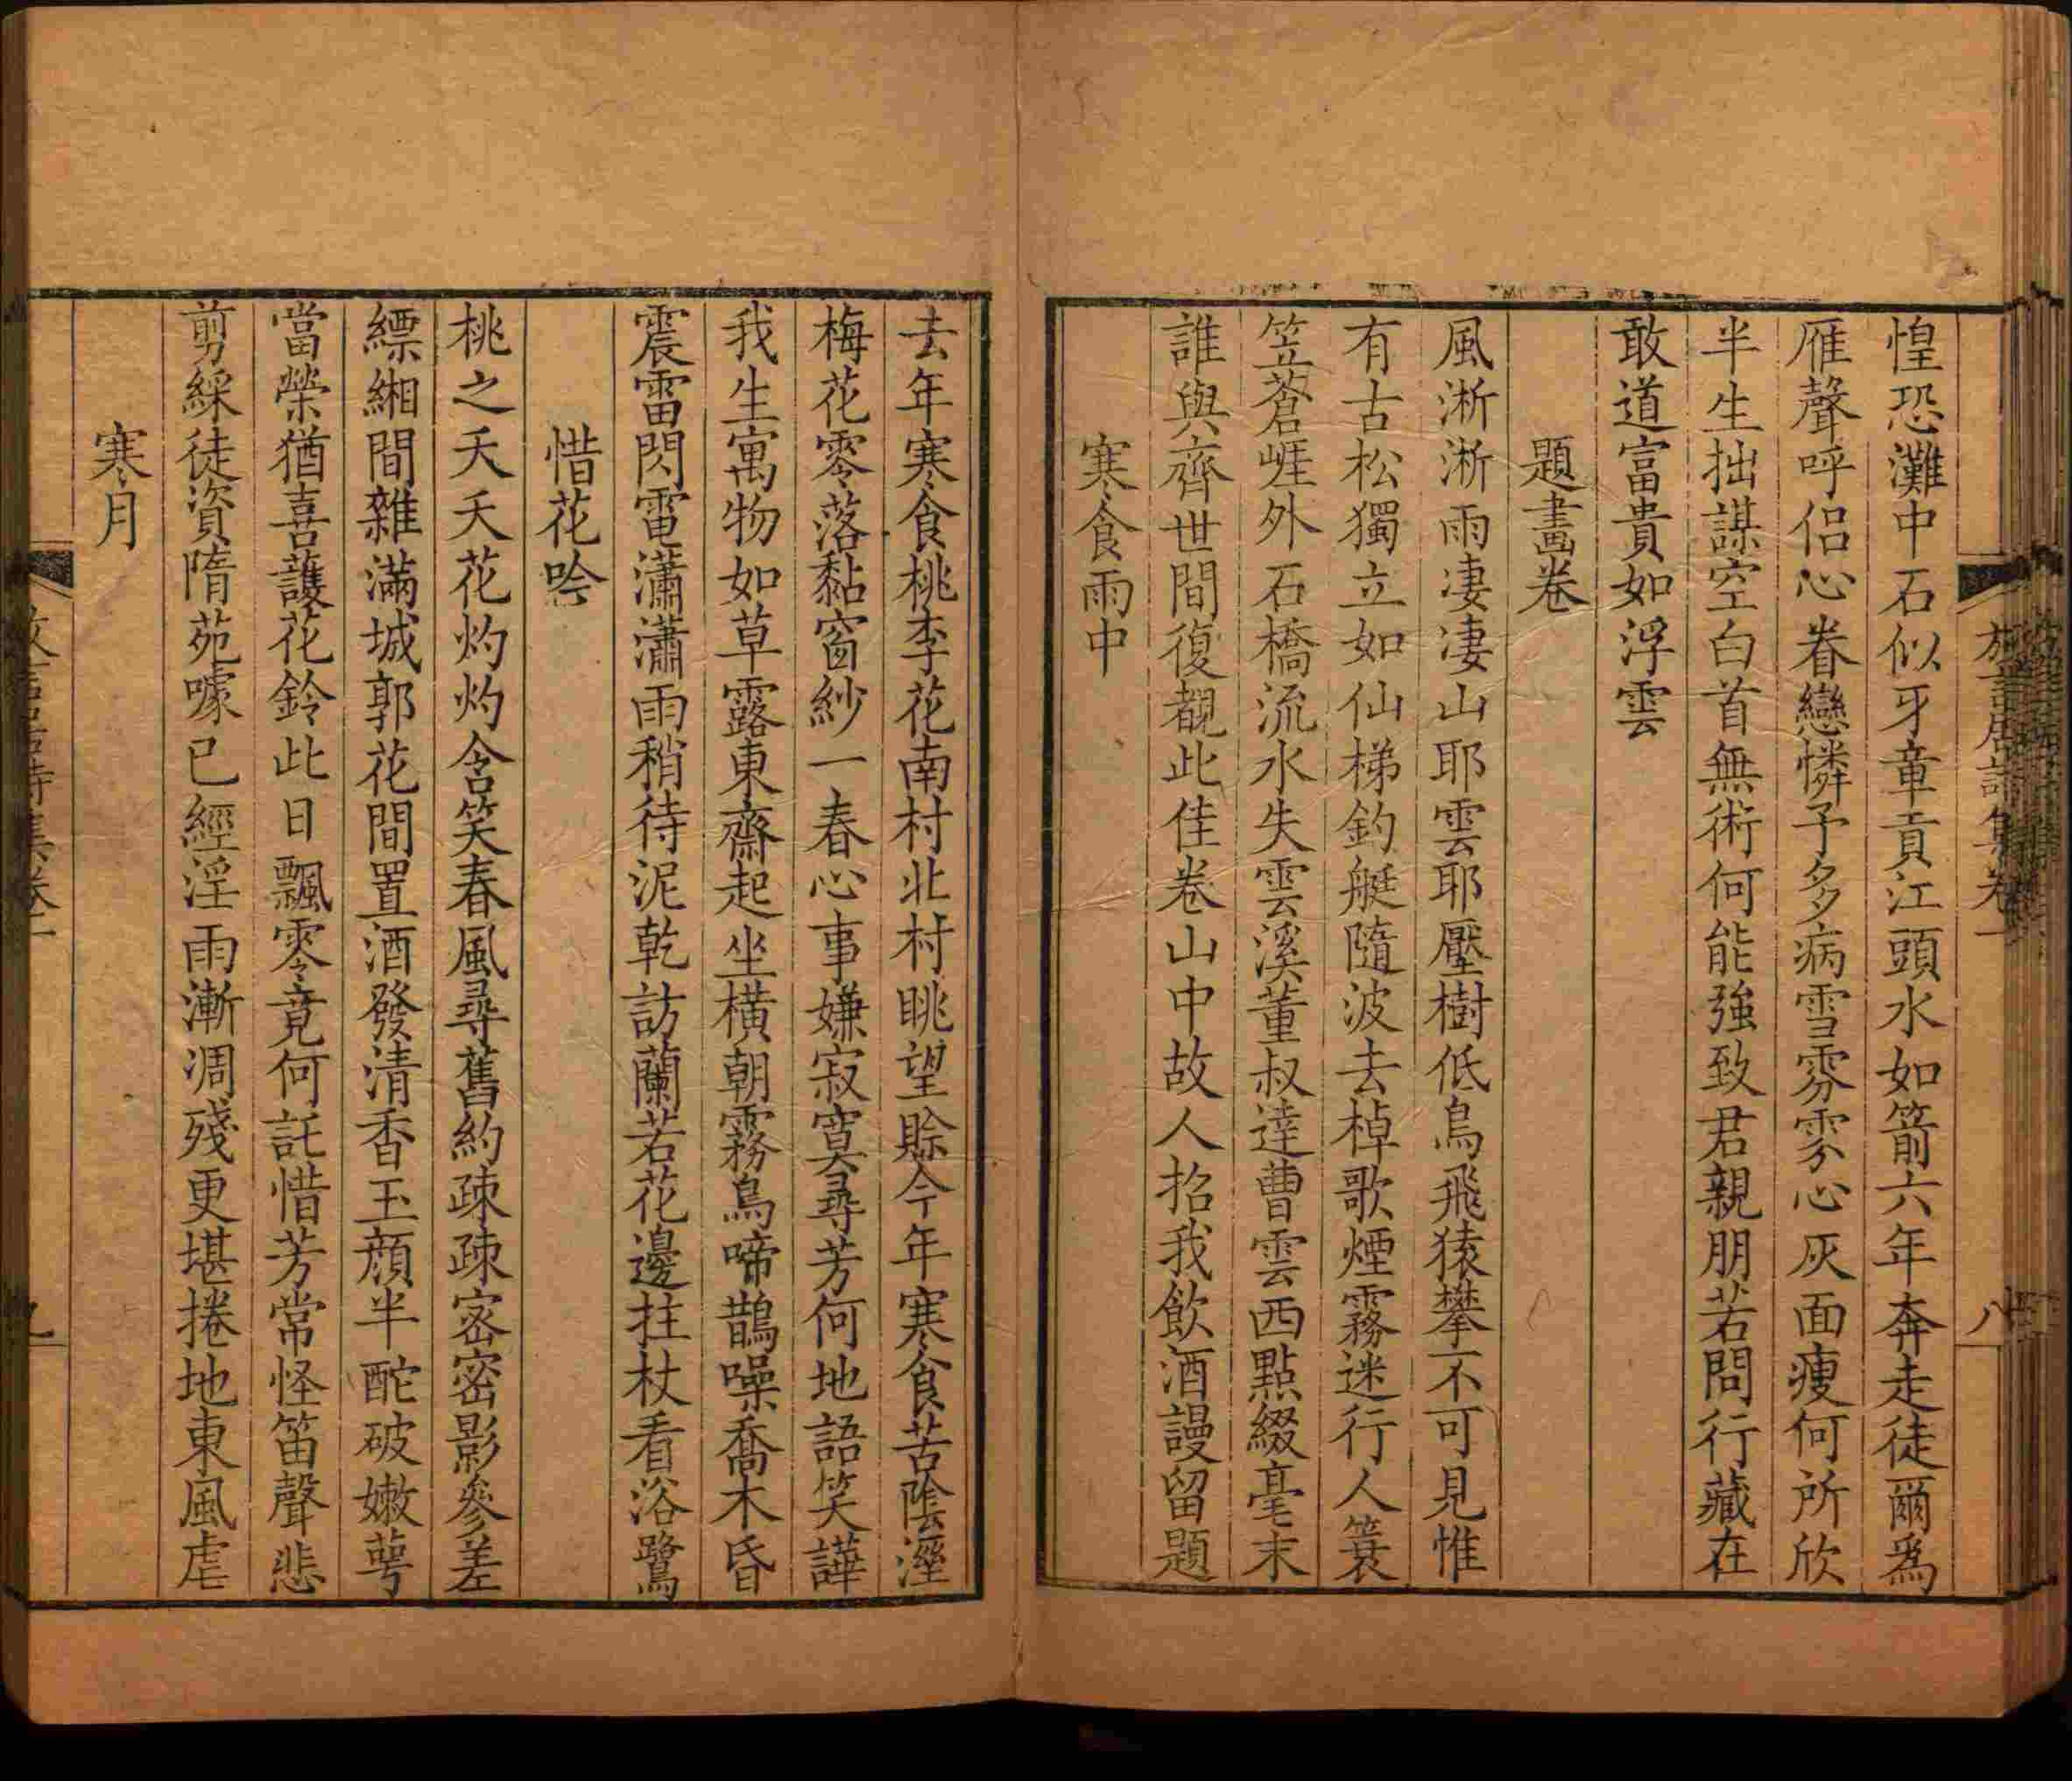 惶恐灘中石似牙章貢江頭水如箭六年奔走徒爾爲
雁聲呼侣心眷戀憐予多病雪雰雰心灰面瘦何所欣
半生拙謀空白首無術何能強致君親朋若問行藏在
敢道富貴如浮雲
題畫卷
風淅淅雨凄凄山耶雲耶壓樹低鳥飛猿攀不可見惟
有古松獨立如仙梯釣艇隨波去棹歌煙霧迷行人簑
笠蒼崕外石橋流水失雲溪董叔達曹雲西點綴毫末
誰與齊世間復覩此佳卷山中故人招我飲酒謾留題
寒食雨中
八
去年寒食桃李花南村北村眺望賖今年寒食苦陰溼
梅花零落黏窗紗一春心事嫌寂寞尋芳何地語笑譁
我生寓物如草露東齋起坐橫朝霧鳥啼鵲噪喬木昏
震雷閃電瀟瀟雨稍待泥乾訪蘭若花邊拄杖看浴鷺
惜花吟
桃之夭夭花灼灼含笑春風尋舊約疎疎密密影參差
縹緗間雜滿城郭花間置酒發清香玉顏半酡破嫩萼
當榮猶喜護花鈴此日飄零竟何託惜芳常怪笛聲悲
剪綵徒資隋苑噱已經淫雨漸凋殘更堪捲地東風虐
寒月
詩集卷一
九